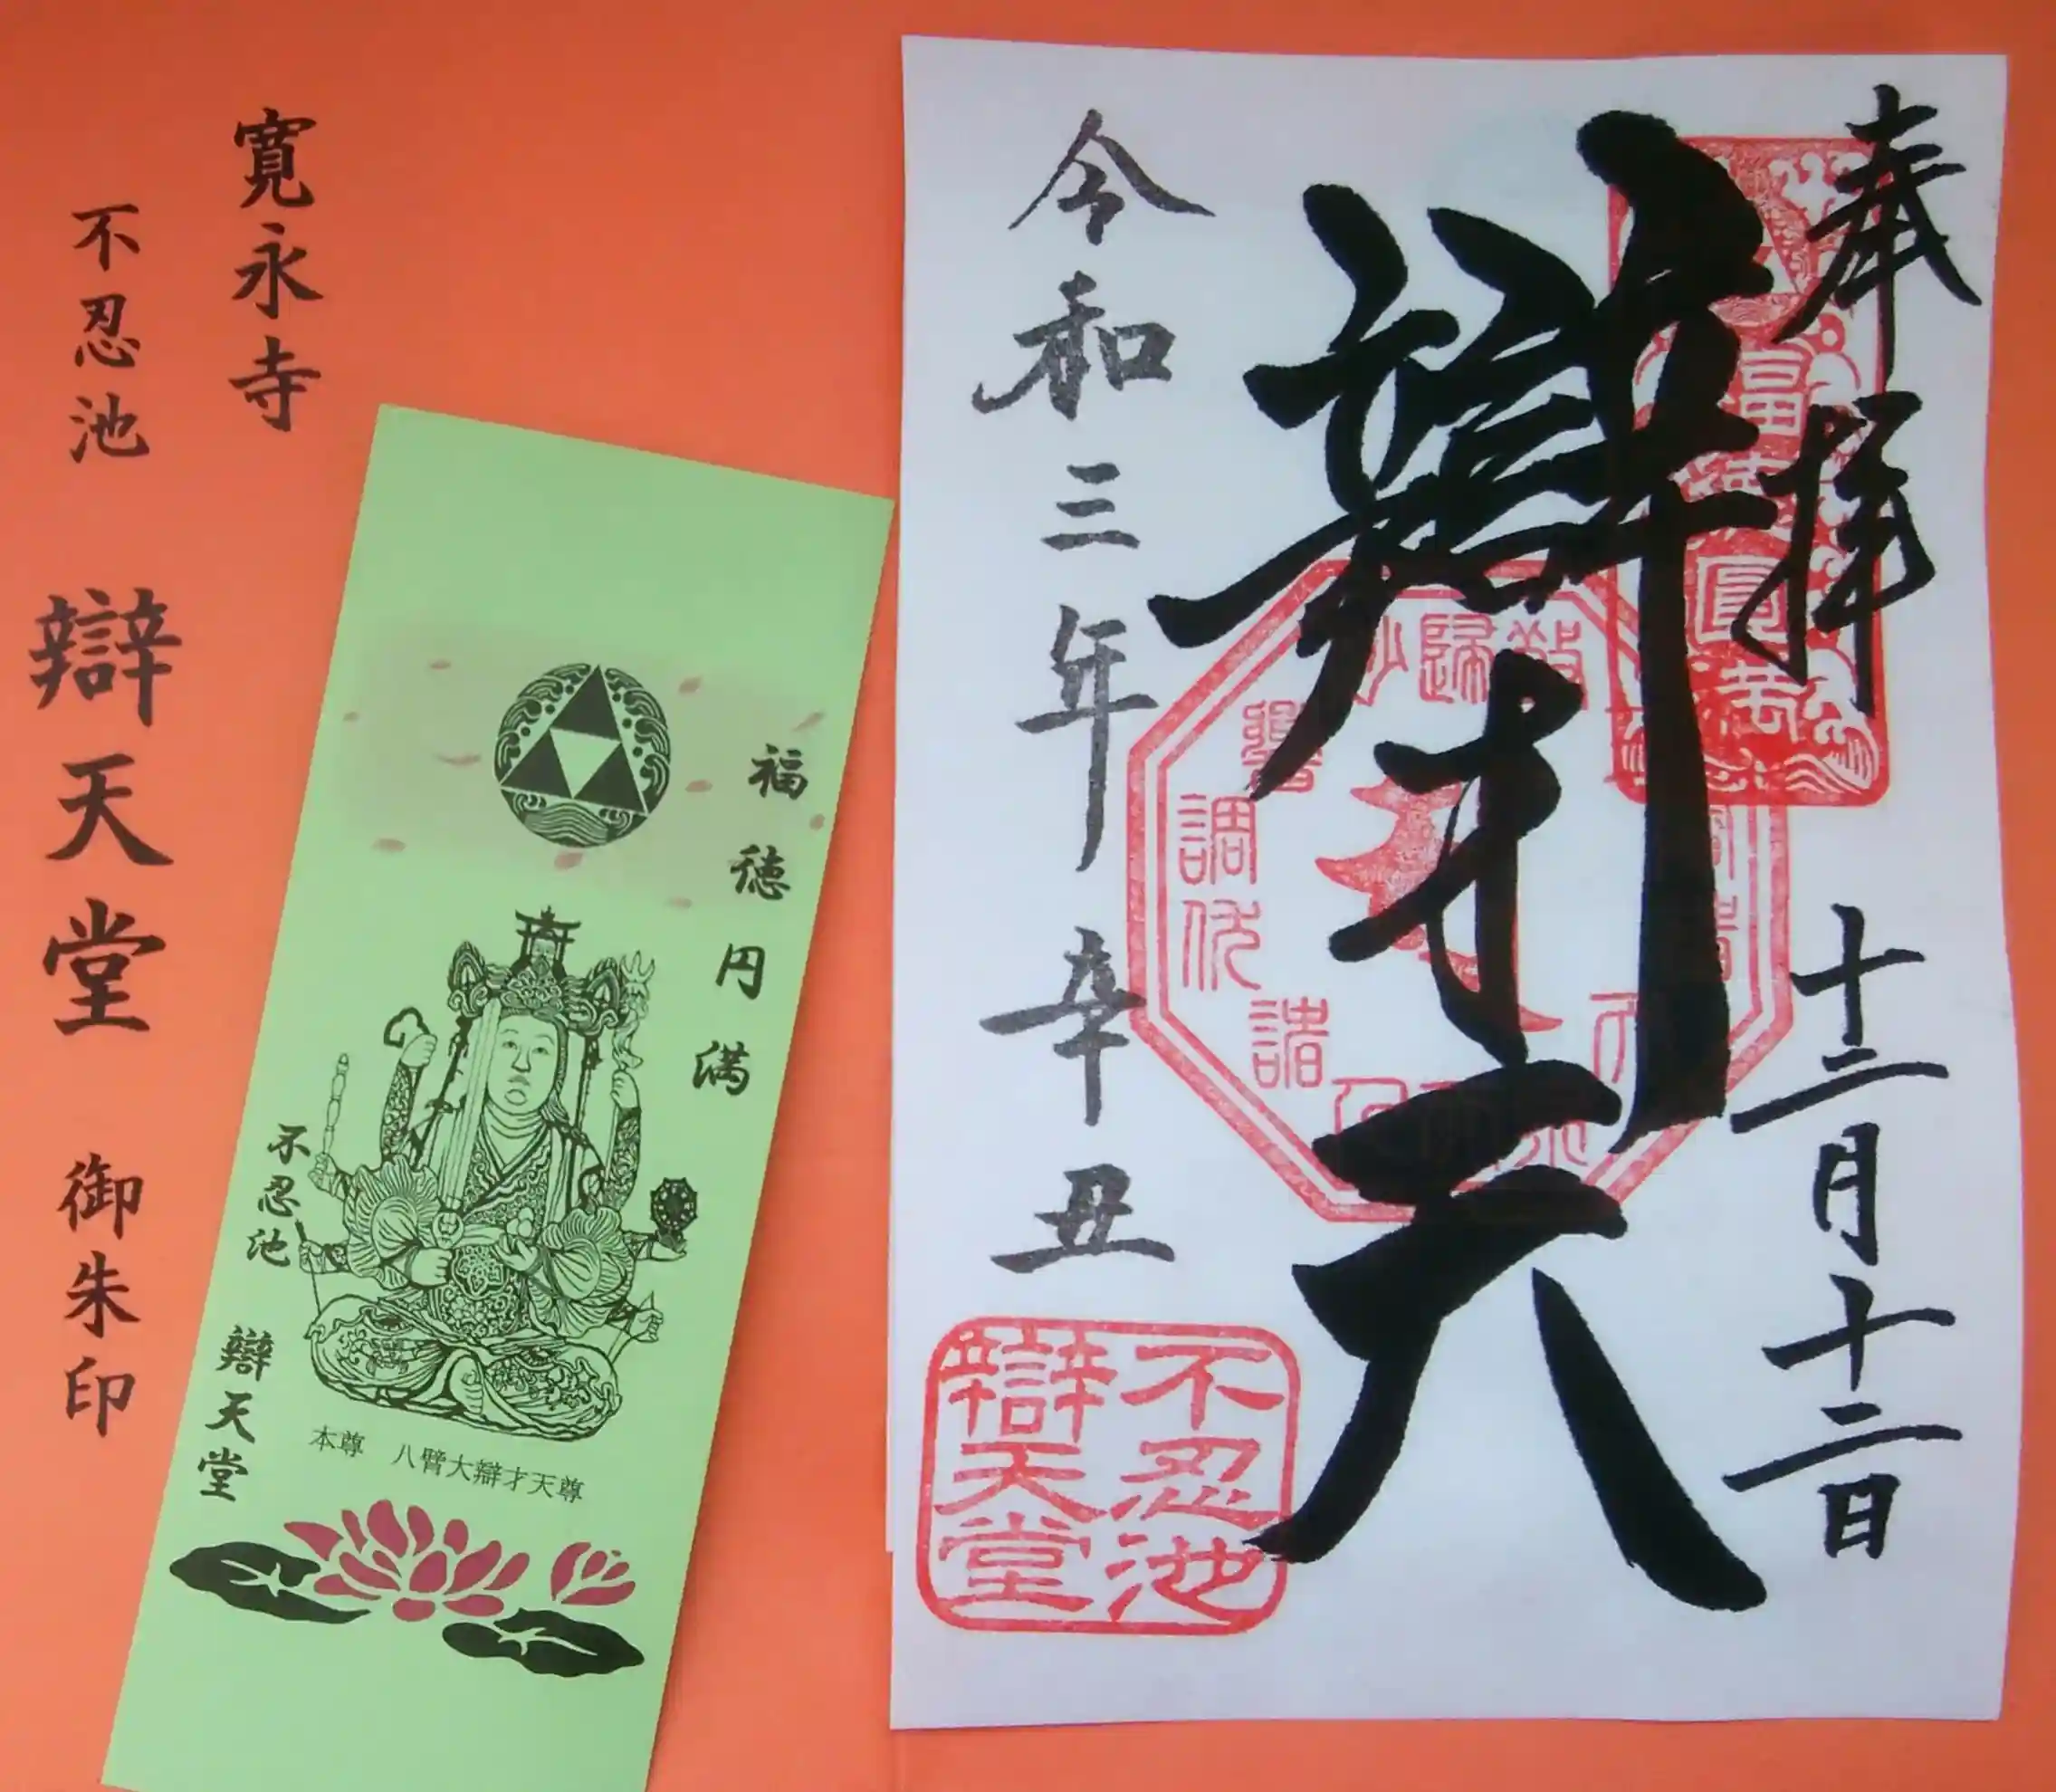 奉拝
十二月十二日
辯才天
令和三年
辛丑
不忍池
辯天堂
寛永寺
不忍池 辯天堂 御朱印
福徳円満
不忍池 辯天堂
本尊 八臂大辯才天尊